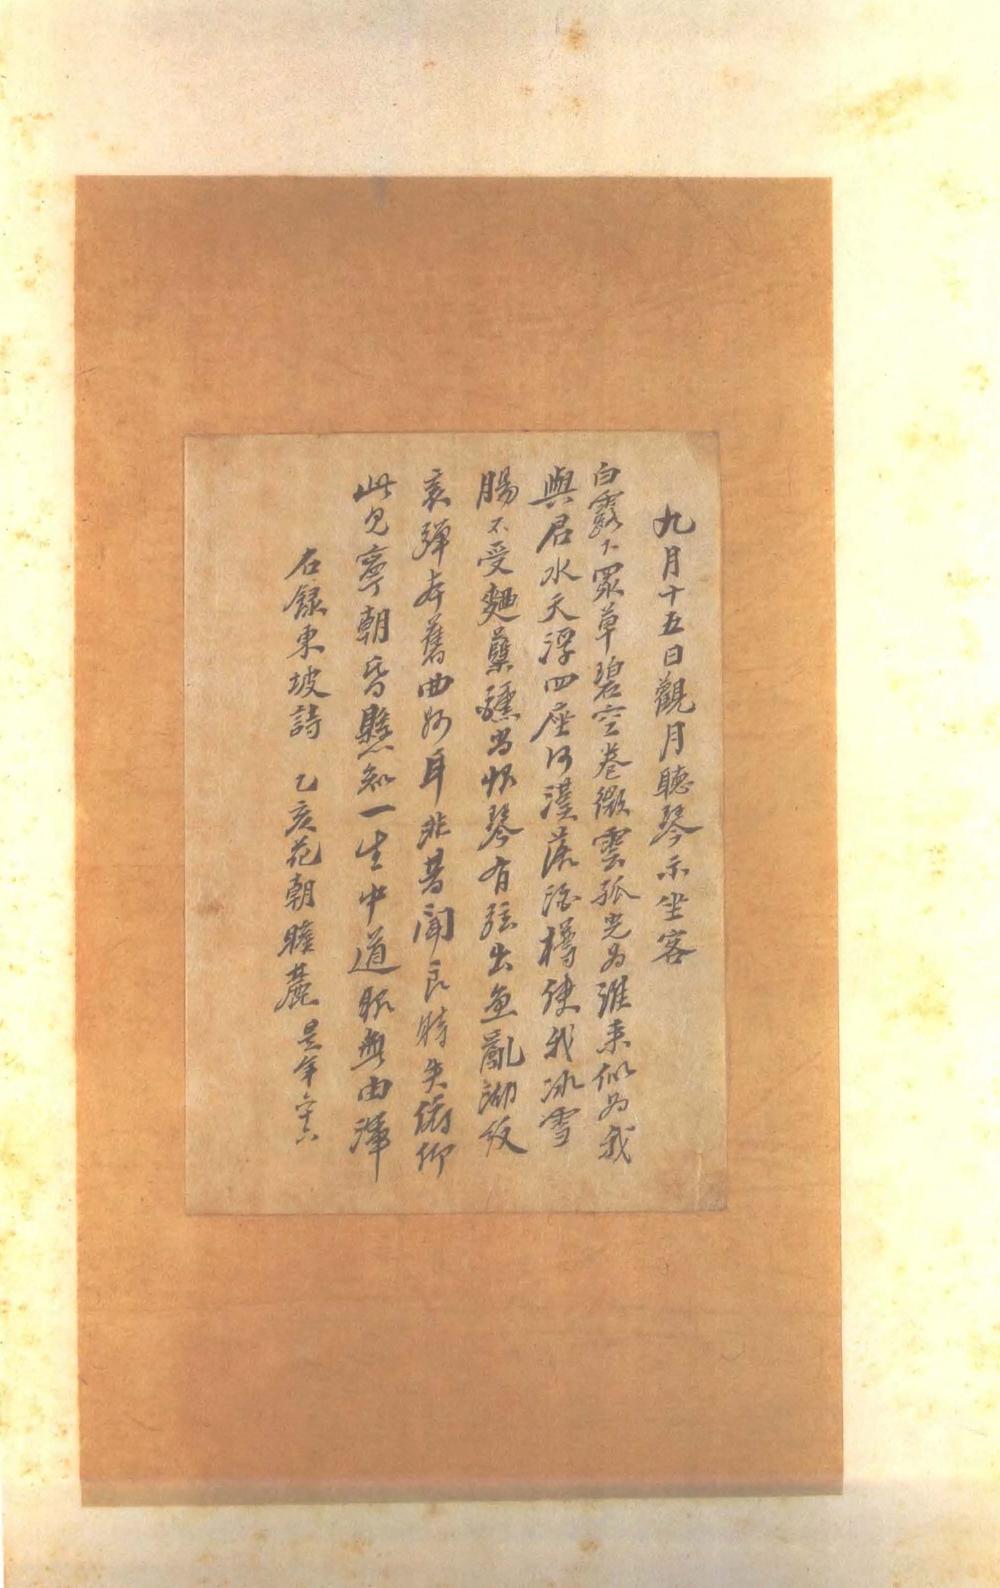 九月十五日觀月聽琴示坐客
白露下眾草碧空卷微雲孤光为誰来似为我
與君水天浮四座河漢落酒樽使我冰雪
腸不受麯蘖醺尚恨琴有弦出魚亂湖紋
哀彈奏舊曲妙耳非昔聞良時失俯仰
此見寧朝昏懸知一生中道眼無由渾
右録東坡詩 乙亥花朝瞻麓 是年